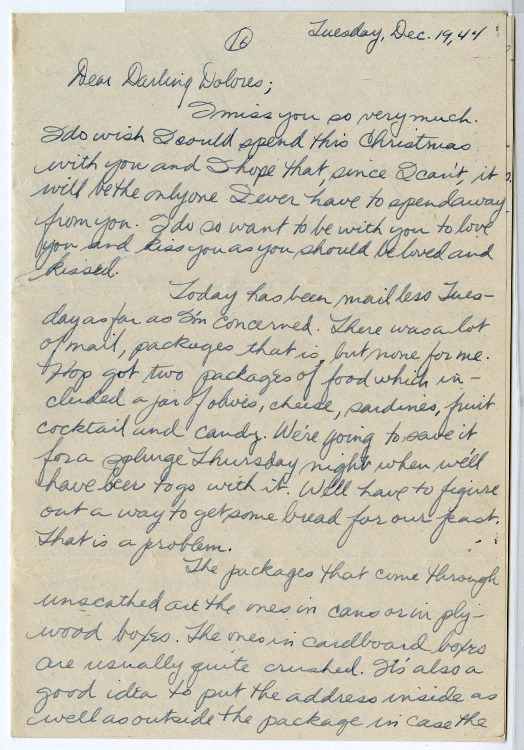 16
Tuesday, Dec. 19, 44
Dear Darling Dolores;
I miss you so very much.
I do wish I could spend this Christmas
with you and I hope that, since I can't, it
will be the only one I ever have to spend away
from you. I do so want to be with you to love
you and kiss you as you should be loved and
kissed.
Today has been mail less Tues-
day as far as I'm concerned. There was a lot
of mail, packages that is, but none for me.
Hop got two packages of food which in-
cluded a jar of olives, cheese, sardines, fruit
cocktail and candy. We're going to save it
for a splurge Thursday night when we'll
have beer to go with it. We'll have to figure
out a way to get some bread for our feast.
That is a problem.
The packages that come through
unscathed are the ones in cans or in ply-
wood boxes. The ones in cardboard boxes
are usually quite crushed. It's also a
good idea to put the address inside as
well as outside the package in case the